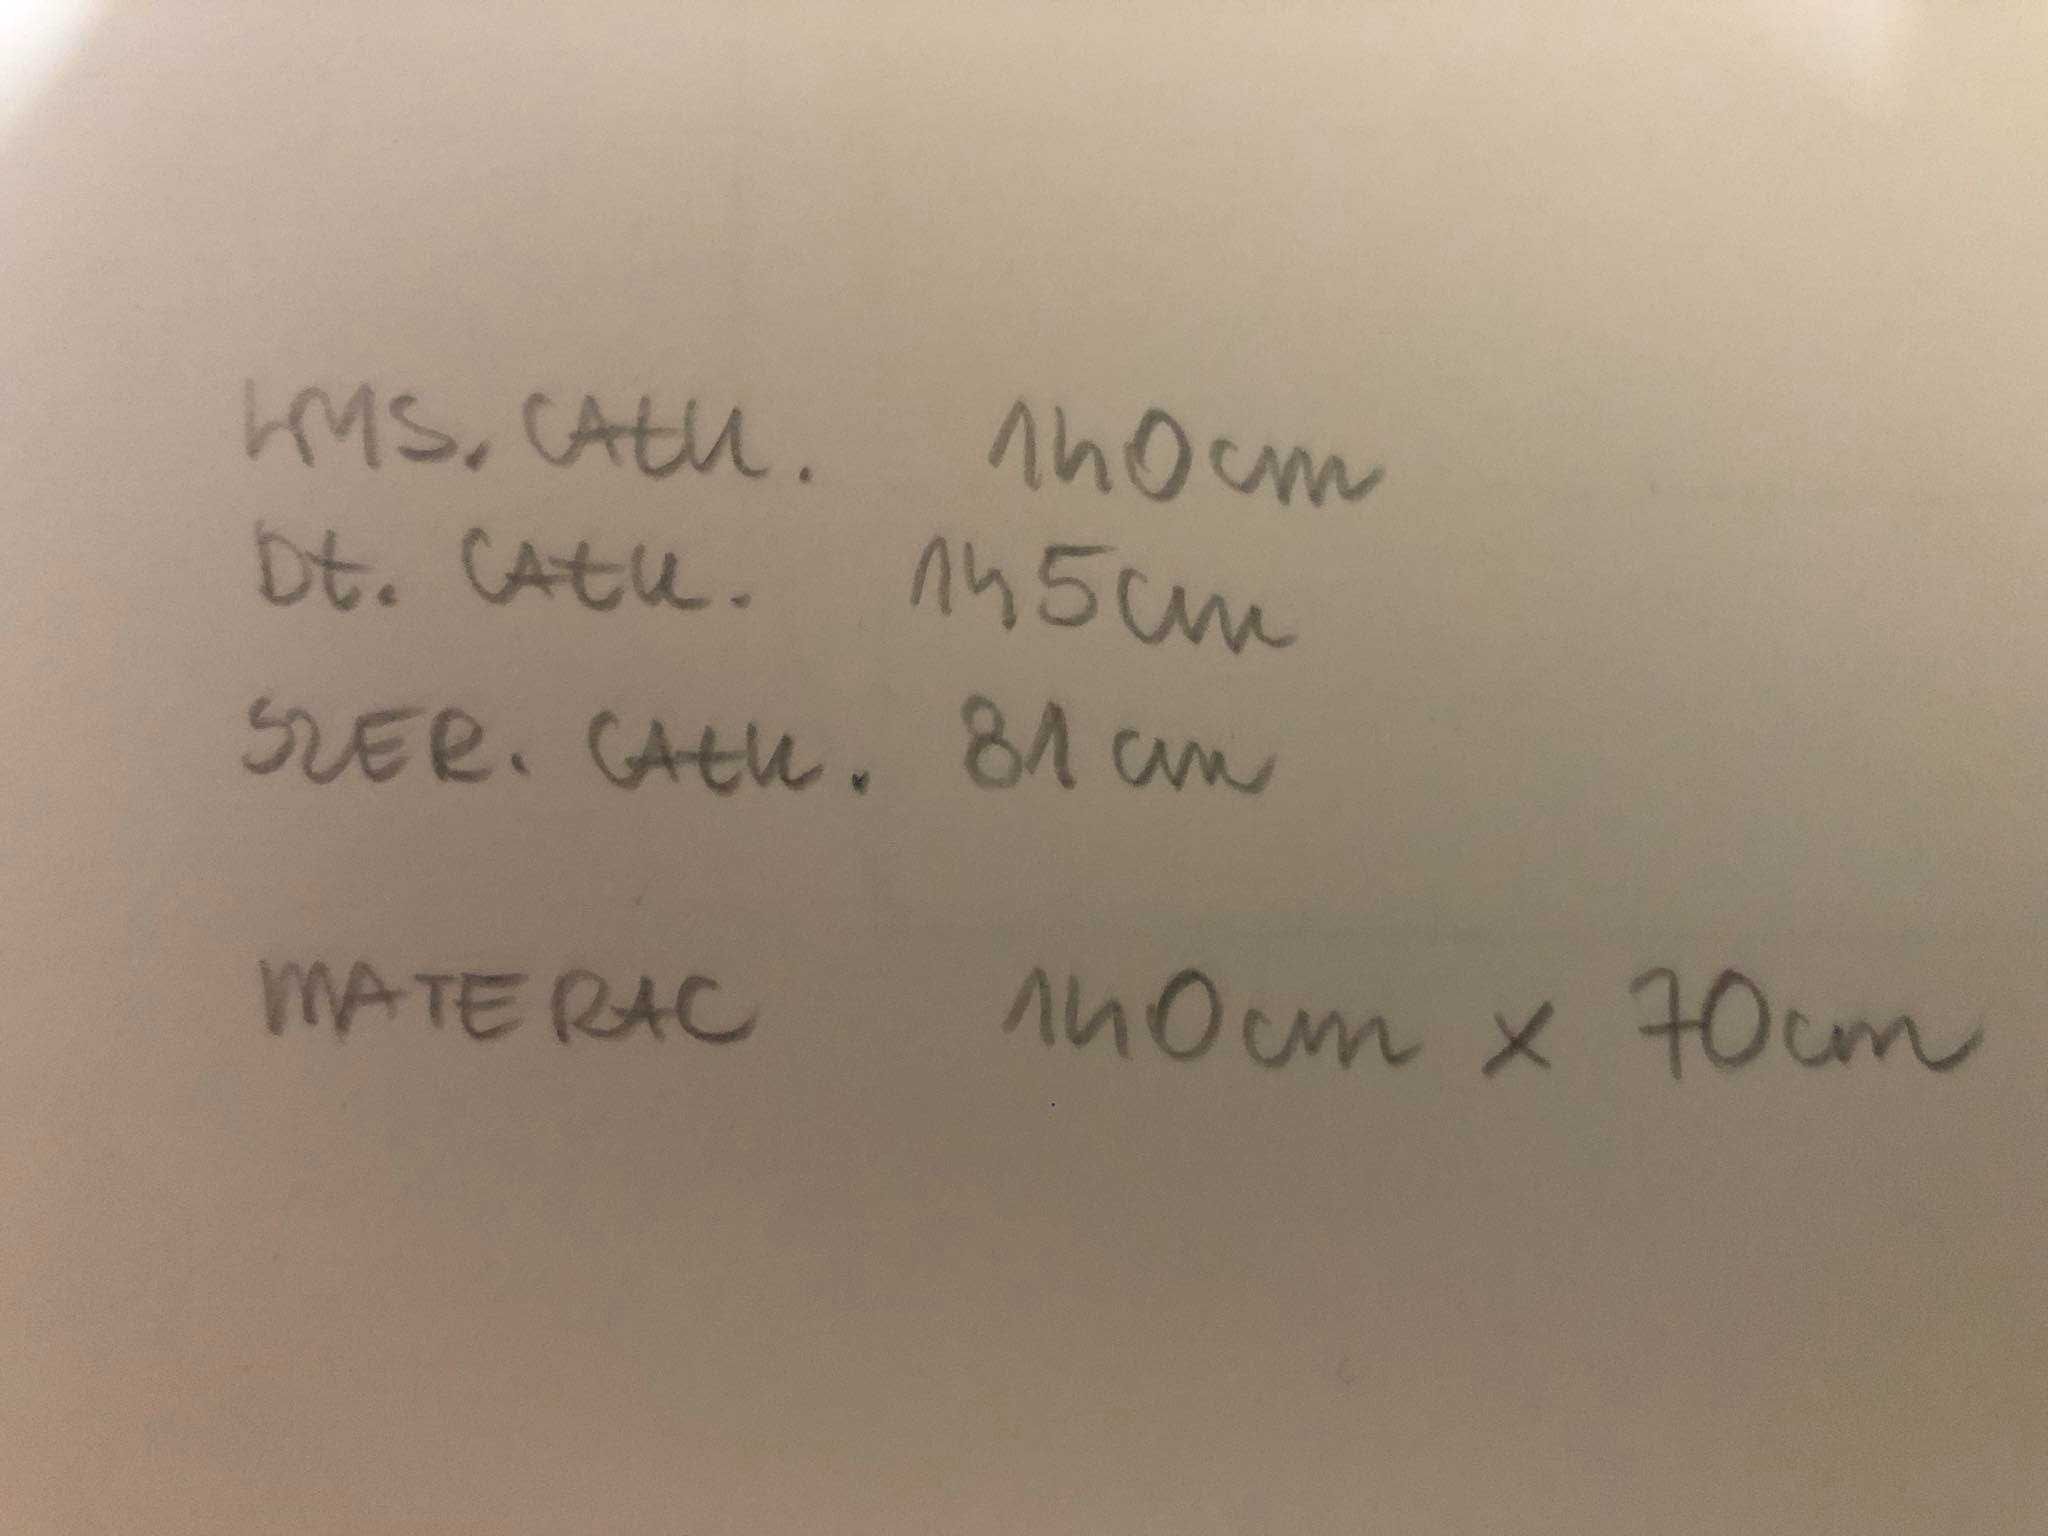 WYS. CAŁK. 140cm
DŁ. CAŁK. 145cm
SZER. CAŁK. 81cm
MATERAC 140cm x 70cm